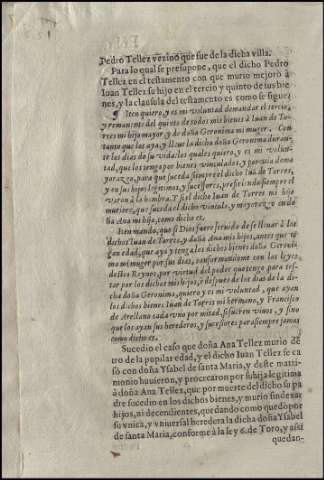 Pedro Tellez vezino que fue de la dicha villa.
Para lo qual se presupone, que el dicho Pedro
Tellez en el testamento con que murio mejorò à
Iuan Tellez su hijo en el tercio y quinto de sus bie
nes, y la clausula del testamento es como se sigue:
Iten quiero, y es mi voluntad de mandar el tercio,
y remanente del quinto de todos mis bienes à Iuan de Tor-
res mi hijo mayor, y de doña Geronima mi muger. Con
tanto que los aya, y lleue la dicha doña Geronima duran-
te los dias de su vida: los quales quiero, y es mi volun-
tad, que los tenga por bienes vinculados, y por via de ma
yorazgo, para que suceda siempre el dicho Iuã de Torres,
y en sus hijos legitimos, y sucessores, prefiriendo siempre el
varon à la hembra. Y si el dicho Iuan de Torres mi hijo
muriere, que suceda el dicho vinculo, y mayorazgo en do
ña Ana mi hija, como dicho es.
Iten mando, que si Dios fuere seruido de se lleuar à los
dichos Iuan de Torres, y doña Ana mis hijos, antes que tè
gan edad, que aya y tenga los dichos bienes doña Geroni-
ma mi muger por sus dias, conformandome con las leyes
destos Reynos, por virtud del poder que tengo para tes-
tar por los dichos mis hijos, y despues de los dias de la di-
cha doña Geronima, quiero y es mi voluntad, que ayan
los dichos bienes Iuan de Torres mi hermano, y Francisco
de Arellana cada vno por mitad, si fueren viuos, y sino
que los ayan sus herederos, y sucessores para siempre jamas
como dicho es.
Sucedio el caso que doña Ana Tellez murio dẽ
tro de la pupilar edad, y el dicho Iuan Tellez se ca
sò con doña Ysabel de santa Maria, y deste matri-
monio huuieron, y procrearon por su hija legitima
à doña Ana Tellez, que por muerte del dicho su pa
dre sucedio en los dichos bienes, y murio sin dexar
hijos, ni decendientes, quedando como quedò por
su vnica, y vniuersal heredera la dicha doña Ysabel
de santa Maria, conforme à la ley 6. de Toro, y assi
quedan-